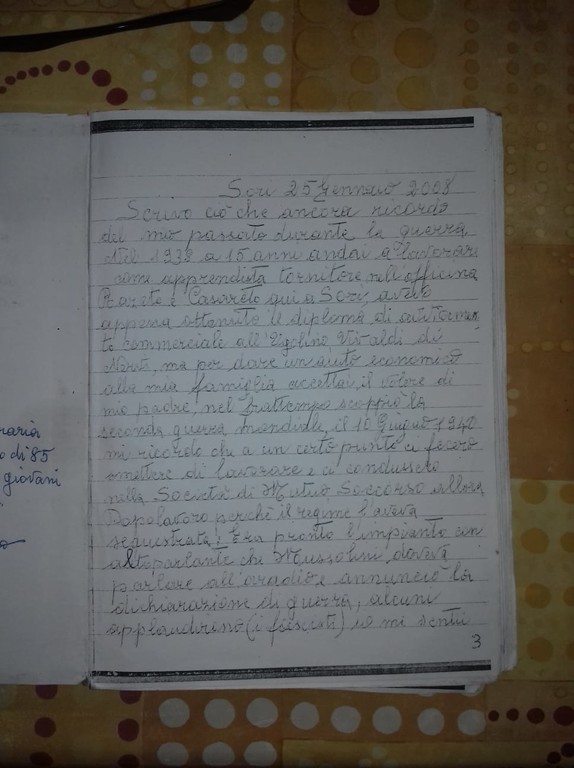 Sori 25 Gennaio 2008
Scrivo ciò che ancora ricordo
del mio passato durante la guerra.
Nel 1938 a 15 anni andai a lavorare
come apprendista tornitore nell'officina
e Casareto qui a Sori, avevo
appena ottenuto il diploma di avviamen
to commerciale all'Ugolino Vivaldi di
Nervi, ma per dare un aiuto economico
alla mia famiglia accettai il volere di
mio padre, nel frattempo scoppiò la
seconda guerra mondiale, il 10 Giugno 1940
mi ricordo che a un certo punto ci fecero
smettere di lavorare e ci condussero
nella Società di Mutuo Soccorso allora
Dopolavoro perchè il regime l'aveva
sequestrata. Era pronto l'impianto con
altoparlante che Mussolini doveva
parlare all'aradio e annunciò la
dichiarazione di guerra, alcuni
applaudirono (i fascisti) io mi sentii
3
raria
o di 85
giovani